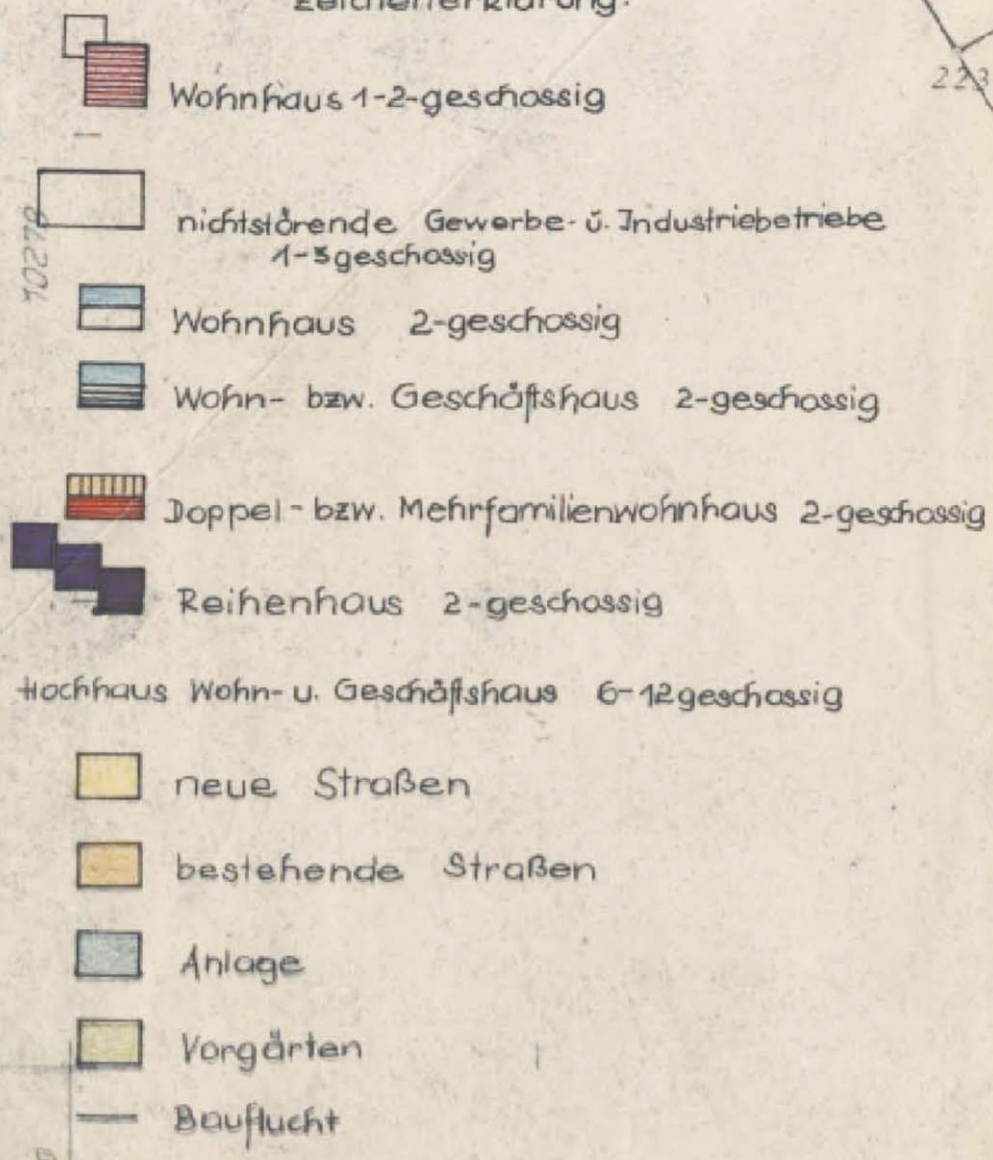 Zeichenerklärung:
223
Wohnhaus 1-2-geschossig
nichtstörende Gewerbe- ü. Industriebetriebe
1-3geschossig
10270
Wohnhaus 2-geschossig
Wohn- bzw. Geschäftshaus 2-geschossig
Doppel- bzw. Mehrfamilienwohnhaus 2-geschossig
Reihenhaus 2-geschossig
Hochhaus Wohn- u. Geschäftshaus 6-12geschossig
neue Straßen
bestehende Straßen
Anlage
Vorgärten
Bauflucht